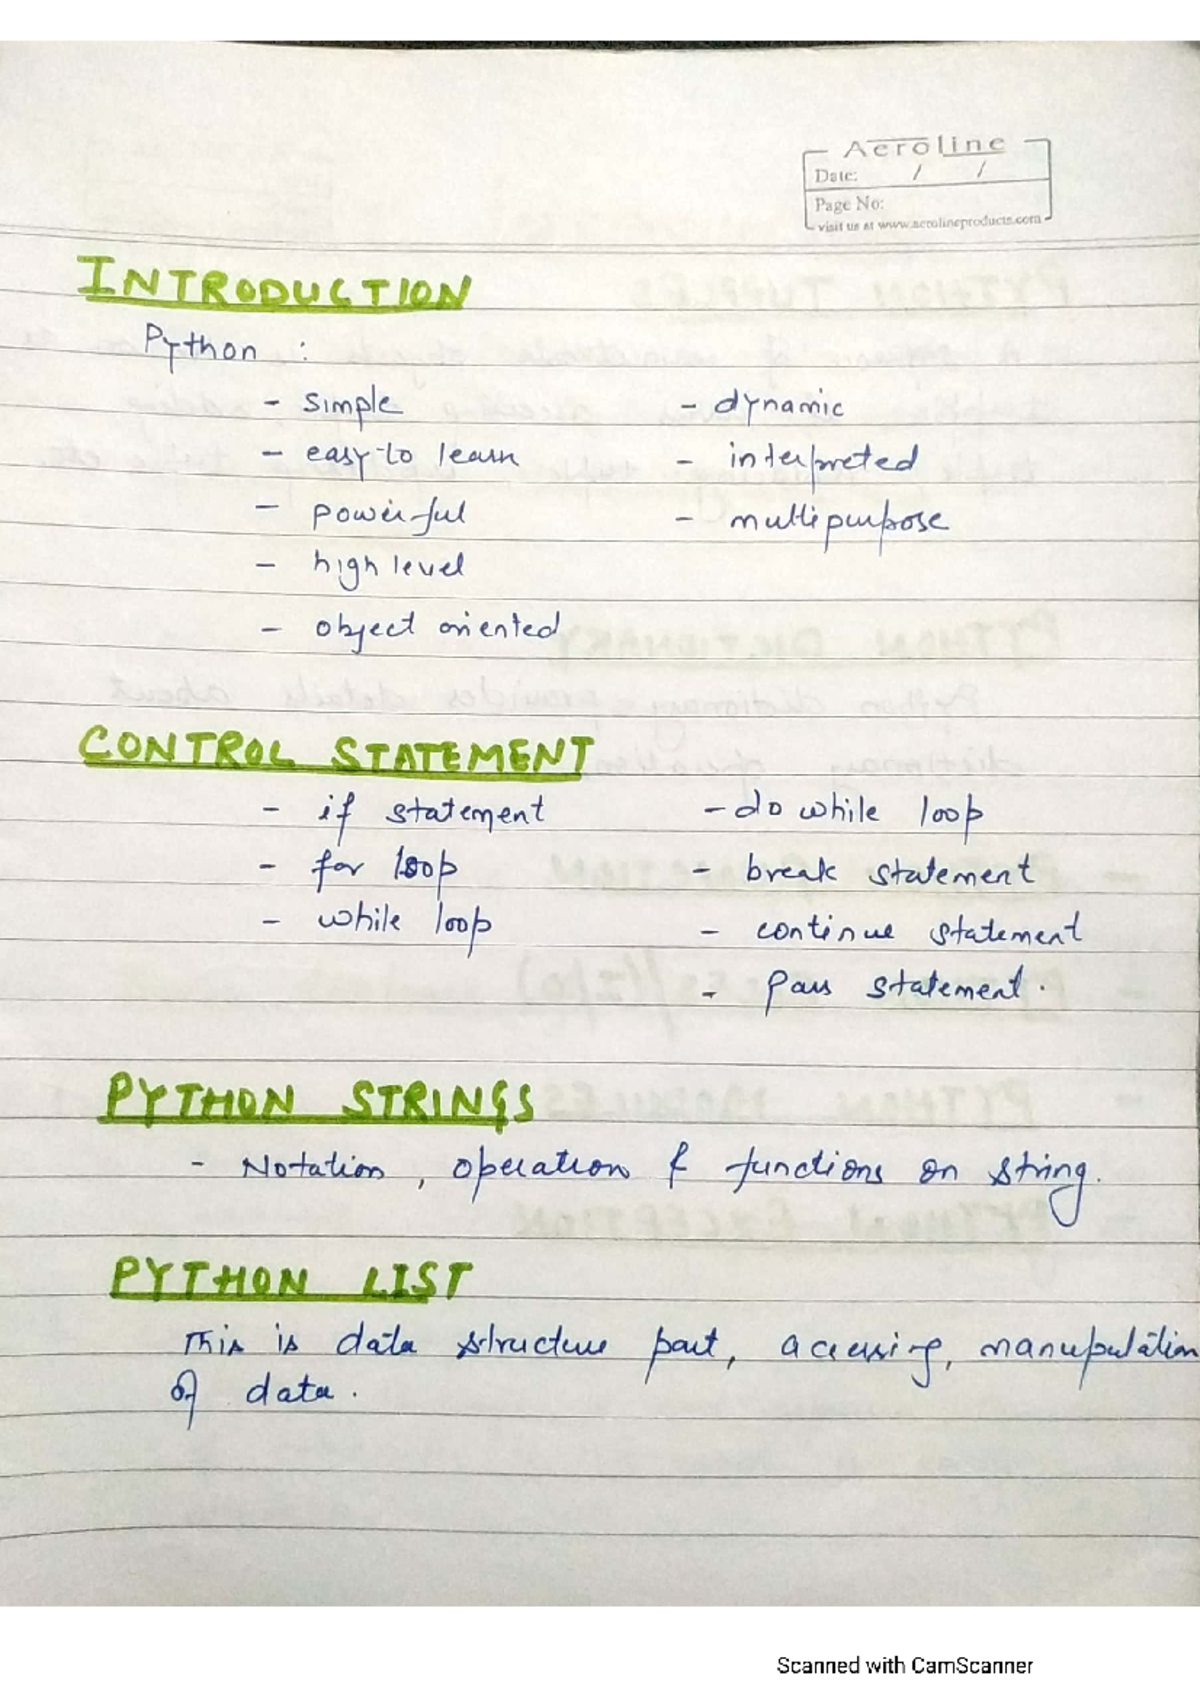 Aeroline
Date: / /
Page No:
visit us at www.aerolineproducts.com
INTRODUCTION
Python :
- simple
- easy-to learn
- powerful
- high level
- object oriented
- dynamic
- interpreted
- multipurpose
CONTROL STATEMENT
- if statement
- for loop
- while loop
- do while loop
- break statement
- continue statement
- pass statement.
PYTHON STRINGS
- Notation, operation & functions on string.
PYTHON LIST
This is data structure part, accessing, manupulation
of data.
Scanned with CamScanner